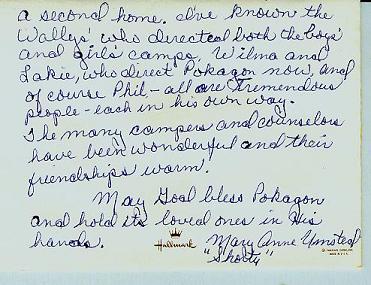 a second home. I've known the
Wallys' who directed both the boys'
and girls' camps, Wilma and
Lakie, who direct Pokagon now, and
of course Phil - all are tremendous
people - each in his own way.
The many campers and counselors
have been wonderful and their
friendships warm.
May God bless Pokagon
and hold its loved ones in His
hands.
Hallmark
Mary Anne Umsted
"Shorty"